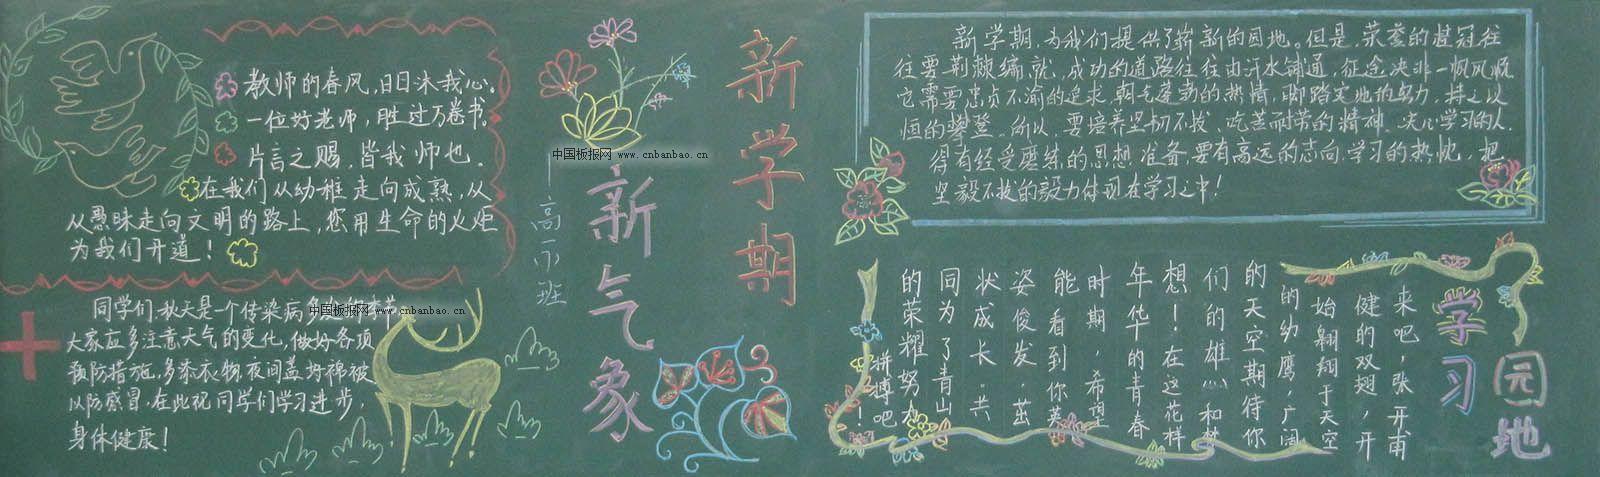 教师的春风，日日沐我心。
一位好老师，胜过万卷书。
片言之赐，皆我师也。
在我们从幼稚走向成熟，从
从愚昧走向文明的路上，您用生命的火炬
为我们开道！
同学们，秋天是一个传染病多发的季节
大家应多注意天气的变化，做好各项
预防措施，多添衣物，夜间盖好棉被
以防感冒，在此祝同学们学习进步，
身体健康！
中国板报网 www.cnbanbao.cn
中国板报网 www.cnbanbao.cn
新学期
新气象
高一 班
新学期，为我们提供了崭新的园地。但是，荣誉的桂冠往
往要荆棘编就，成功的道路往往由汗水铺通，征途决非一帆风顺
它需要忠贞不渝的追求，朝气蓬勃的热情，脚踏实地的努力，持之以
恒的攀登。所以，要培养坚韧不拔、吃苦耐劳的精神。决心学习的人，
得有经受磨练的思想准备，要有高远的志向，学习的热忱，把
坚毅不拔的毅力体现在学习之中！
学习
园地
来吧，张开甫
健的双翅，开
始翱翔于天空
的幼鹰，广阔
的天空期待你
们的雄心和梦
想！在这花样
年华的青春
时期，希望
能看到你英
姿俊发，茁
状成长，共
同为了青山
的荣耀努力
拼搏吧！